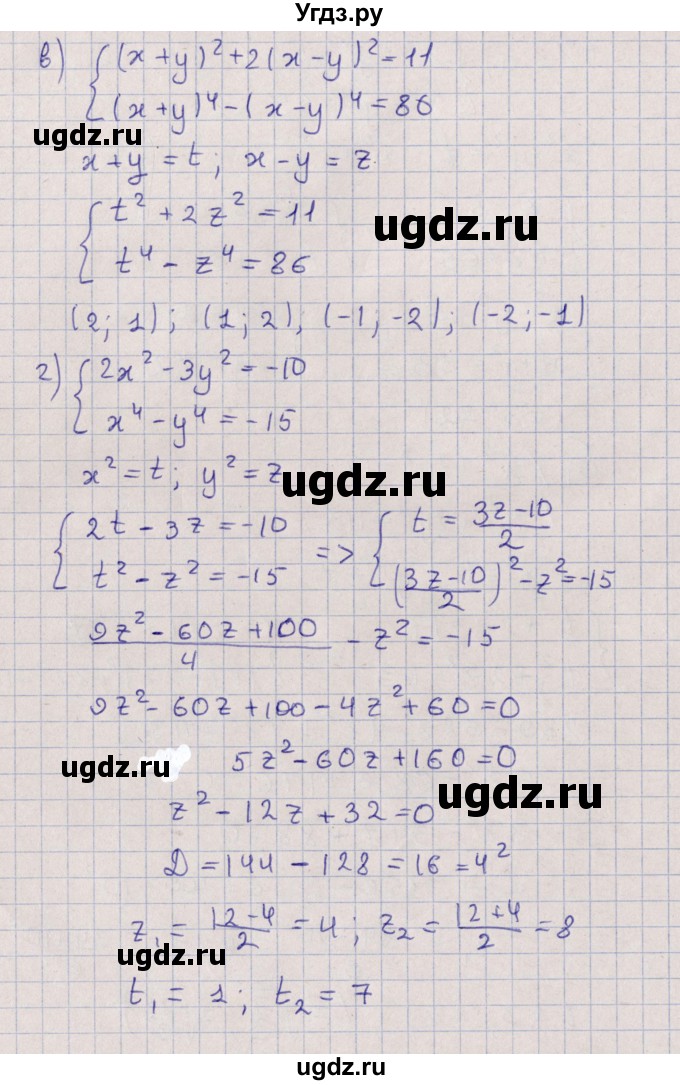 Угдз.ру
в) { (x+y)² + 2(x-y)² = 11
(x+y)⁴ - (x-y)⁴ = 86
ugdz.ru
x+y = t; x-y = z
{ t² + 2z² = 11
ugdz.ru
t⁴ - z⁴ = 86
(2; 1); (1; 2), (-1; -2); (-2; -1)
г) { 2x² - 3y² = -10
x⁴ - y⁴ = -15
x² = t; y² = z
ugdz.ru
{ 2t - 3z = -10 => { t = (3z-10)/2
t² - z² = -15 ((3z-10)/2)² - z² = -15
(9z² - 60z + 100)/4 - z² = -15
9z² - 60z + 100 - 4z² + 60 = 0
ugdz.ru 5z² - 60z + 160 = 0
z² - 12z + 32 = 0 ugdz.ru
D = 144 - 128 = 16 = 4²
z₁ = (12-4)/2 = 4; z₂ = (12+4)/2 = 8
ugdz.ru
t₁ = 1; t₂ = 7
ugdz.ru